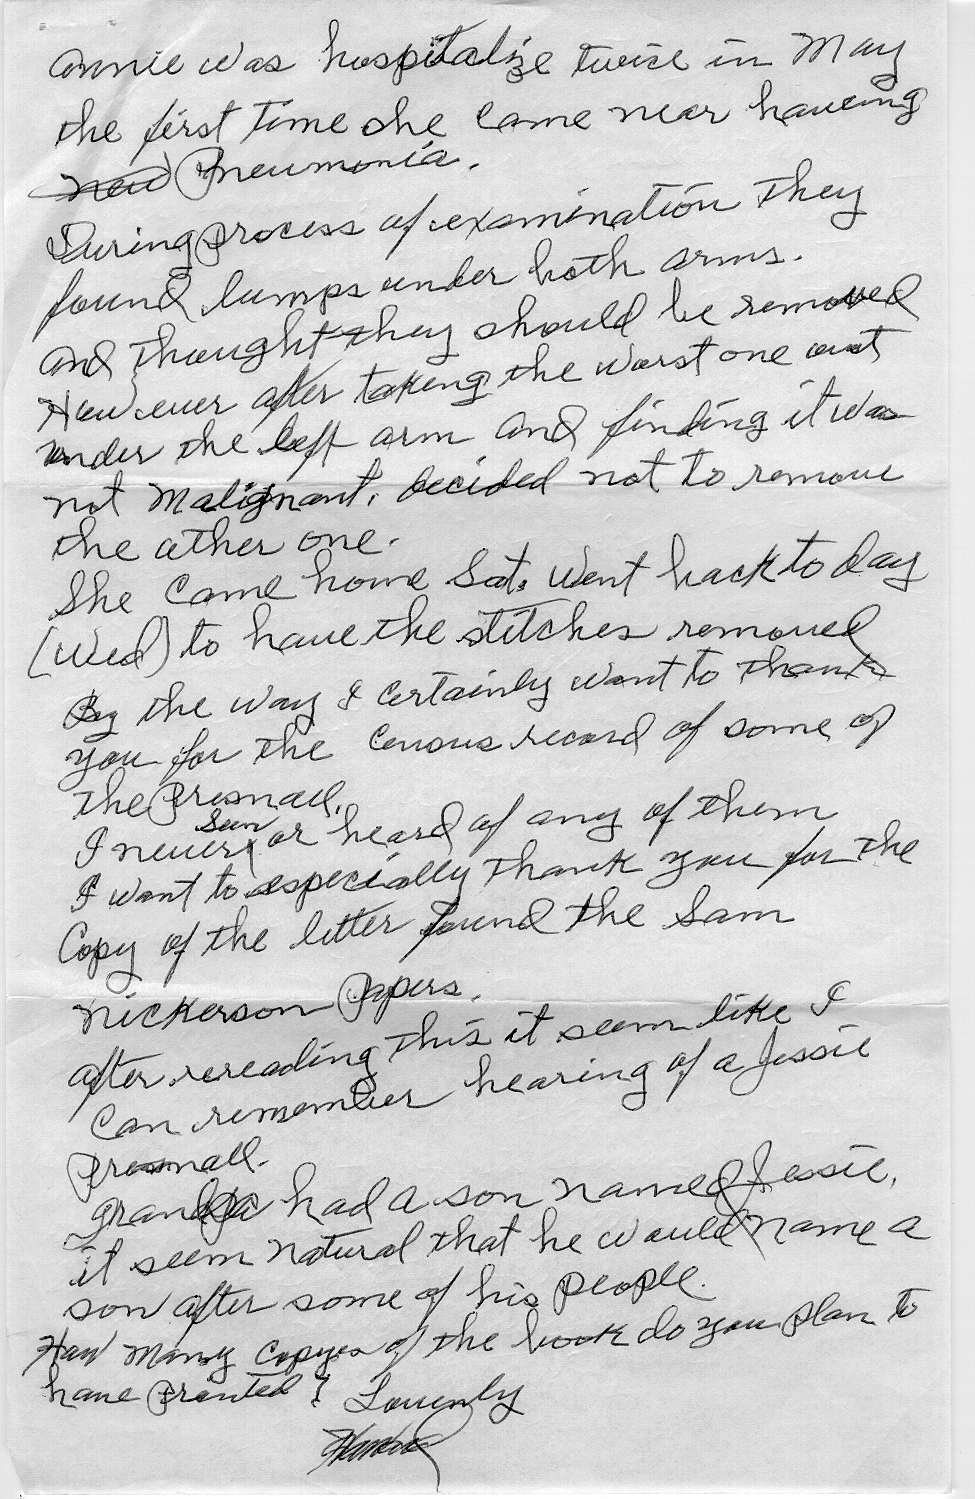 Annie was hospitalize twice in May
the first time she came near having
new Pneumonia.
During process of examination they
found lumps under both arms.
and thought they should be removed
However after taking the worst one out
under the left arm and finding it was
not malignant, decided not to remove
the other one.
She came home Sat. Went back to day
(Wed) to have the stitches removed
By the way I certainly want to thank
you for the census record of some of
the Presnall.
I never seen or heard of any of them
I want to especially thank you for the
Copy of the letter found the Sam
Nickerson Papers.
after rereading this it seem like I
Can remember hearing of a Jessie
Presnall.
Grandpa had a son named Jessie,
it seem natural that he would name a
son after some of his people.
How many copyes of the book do you plan to
have Pranted? Lovenly